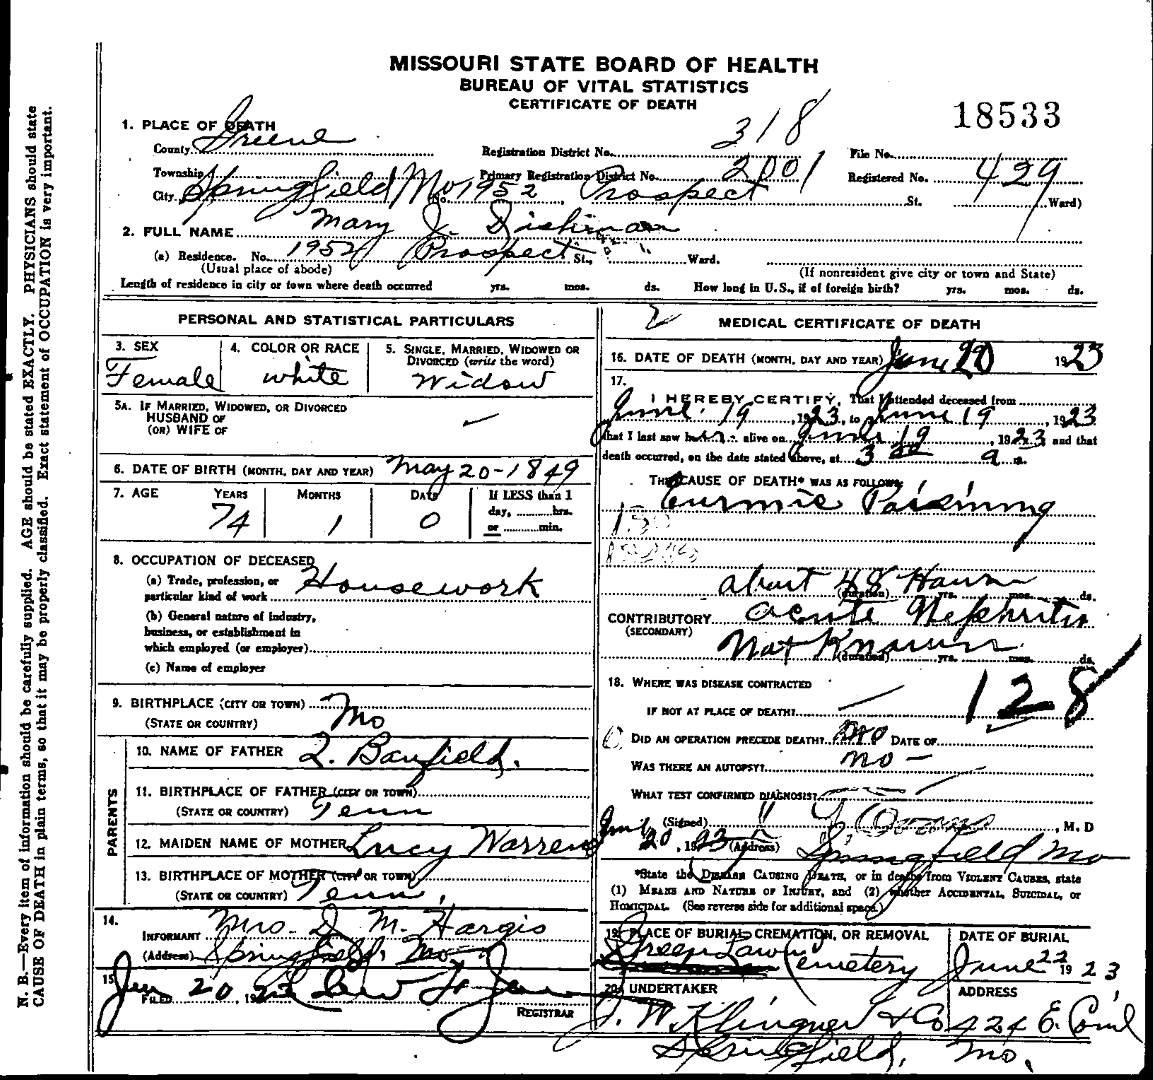 MISSOURI STATE BOARD OF HEALTH
BUREAU OF VITAL STATISTICS
CERTIFICATE OF DEATH
18533
1. PLACE OF DEATH
County Greene Registration District No. 318 File No.
Township Primary Registration District No. 2001 Registered No. 429
City Springfield Mo No. 1952 Prospect St. Ward)
2. FULL NAME Mary J. Dishman
(a) Residence. No. 1952 Prospect St., Ward.
(Usual place of abode) (If nonresident give city or town and State)
Length of residence in city or town where death occurred yrs. mos. ds. How long in U.S., if of foreign birth? yrs. mos. ds.
PERSONAL AND STATISTICAL PARTICULARS
3. SEX 4. COLOR OR RACE 5. SINGLE, MARRIED, WIDOWED OR
DIVORCED (write the word)
Female white Widow
5A. IF MARRIED, WIDOWED, OR DIVORCED
HUSBAND OF
(OR) WIFE OF
6. DATE OF BIRTH (MONTH, DAY AND YEAR) May 20-1849
7. AGE YEARS MONTHS DAYS If LESS than 1
day, hrs.
or min.
74 1 0
8. OCCUPATION OF DECEASED
(a) Trade, profession, or
particular kind of work Housework
(b) General nature of industry,
business, or establishment in
which employed (or employer)
(c) Name of employer
9. BIRTHPLACE (CITY OR TOWN)
(STATE OR COUNTRY) Mo
PARENTS
10. NAME OF FATHER Banfield.
11. BIRTHPLACE OF FATHER (CITY OR TOWN)
(STATE OR COUNTRY) Tenn
12. MAIDEN NAME OF MOTHER Lucy Warren
13. BIRTHPLACE OF MOTHER (CITY OR TOWN)
(STATE OR COUNTRY) Tenn.
14.
INFORMANT Mrs. D. M. Hargis
(Address) Springfield, Mo
15.
FILED Jun 20, 192
REGISTRAR
MEDICAL CERTIFICATE OF DEATH
16. DATE OF DEATH (MONTH, DAY AND YEAR) June 20 1923
17.
I HEREBY CERTIFY, That I attended deceased from
June 19, 1923, to June 19, 1923
that I last saw her alive on June 19, 1923 and that
death occurred, on the date stated above, at 3 a m.
THE CAUSE OF DEATH* WAS AS FOLLOWS:
Eurmic Poisining
about 48 Hours
(duration) yrs. mos. ds.
CONTRIBUTORY acute Nephritis
(SECONDARY)
Not Known
(duration) yrs. mos. ds.
128
18. WHERE WAS DISEASE CONTRACTED
IF NOT AT PLACE OF DEATH?
DID AN OPERATION PRECEDE DEATH? no DATE OF
WAS THERE AN AUTOPSY? no -
WHAT TEST CONFIRMED DIAGNOSIS?
(Signed) , M. D
June 20, 1923 (Address) Springfield Mo
*State the DISEASE CAUSING DEATH, or in deaths from VIOLENT CAUSES, state
(1) MEANS AND NATURE OF INJURY, and (2) whether ACCIDENTAL, SUICIDAL, or
HOMICIDAL. (See reverse side for additional space.)
19. PLACE OF BURIAL, CREMATION, OR REMOVAL DATE OF BURIAL
Green Lawn Cemetery June 22 1923
20. UNDERTAKER ADDRESS
J. W. Klingner & Co 424 E. Coml
Springfield, Mo.
N. B.—Every item of information should be carefully supplied. AGE should be stated EXACTLY. PHYSICIANS should state
CAUSE OF DEATH in plain terms, so that it may be properly classified. Exact statement of OCCUPATION is very important.